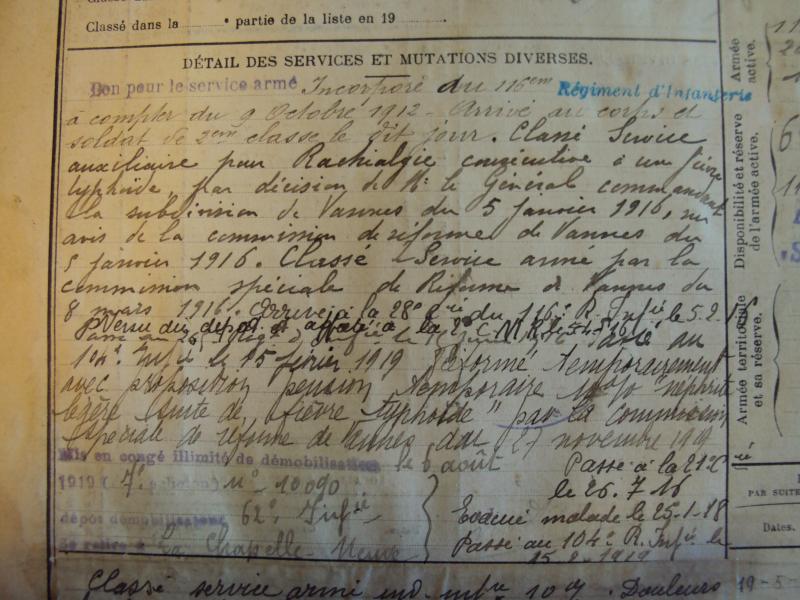 Classé dans la e partie de la liste en 19
DÉTAIL DES SERVICES ET MUTATIONS DIVERSES.
Bon pour le service armé Incorporé du 116em Régiment d'Infanterie
à compter du 9 Octobre 1912 - Arrivé au corps et
soldat de 2em classe le dit jour. Classé Service
auxiliaire pour Rachialgie consécutive à un fièvre
typhoïde, par décision de Mr le Général commandant
la subdivision de Vannes du 5 janvier 1916, sur
avis de la commission de réforme de Vannes du
5 janvier 1916. Classé Service armé par la
commission spéciale de Réforme de Vannes du
8 mars 1916. Arrivé à la 28e Cie du 116e R. Infie le 5.2.1
Venu du dépôt et affecté à la 2e C.M.R le 5.4.16
Passé au
104e Infie le 15 février 1919 Réformé temporairement
avec proposition pension temporaire 10% "néphrite
légère suite de fièvre typhoïde" par la Commission
spéciale de réforme de Vannes du 27 novembre 1919
Mis en congé illimité de démobilisation le 6 août
1919 (4e échelon) No 10090
dépôt démobilisateur 62e Infie
se retire à La Chapelle Neuve
Passé à la 21e Cie
le 26.7.16
Evacué malade le 25-1-18
Passé au 104e R. Infie le
15.2.1919
Classé service armé 10% Douleurs
Armée
active.
Disponibilité et réserve
de l'armée active.
Armée territoriale
et sa réserve.
PAR SUITE
Dates.
19-5-